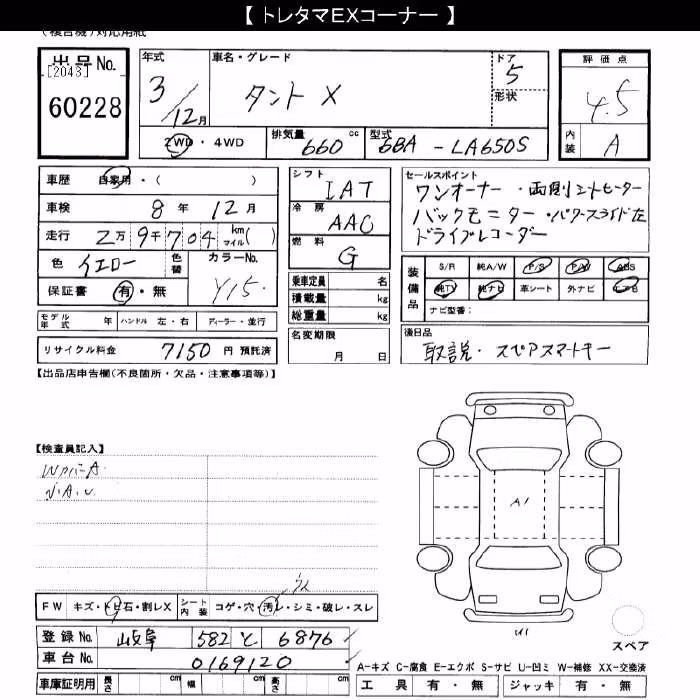 【 トレタマEXコーナー 】
(複合機)対応用紙
出品No.
[2043]
60228
年式
3/12月
車名・グレード
タント X
ドア
5
形状
評価点
4.5
内装
A
2WD ・ 4WD
排気量
660 cc
型式
6BA - LA650S
車歴 自家用・( )
車検 8年 12月
走行 2万9千704 km マイル( )
色 イエロー 色替
カラーNo.
Y15
保証書 有・無
シフト
IAT
冷房
AAC
燃料
G
乗車定員 名
積載量 kg
総重量 kg
セールスポイント
ワンオーナー・両側シートヒーター
バックモニター・パワースライド左
ドライブレコーダー
装備品
S/R 純A/W P/S P/W ABS
純TV 純ナビ 革シート 外ナビ エアB
ナビ型番:
モデル年式 年 ハンドル 左・右 ディーラー・並行
リサイクル料金 7150 円 預託済
名変期限
月 日
後日品
取説・スペアスマートキー
【出品店申告欄(不良箇所・欠品・注意事項等)】
【検査員記入】
A1
U1
スペア
FW キズ・トビ石・割レX
シート内装 コゲ・穴・汚レ・シミ・破レ・スレ
登録No. 岐阜 582 と 6876
車台No. 0169120
車庫証明用 長さ cm 幅 cm 高さ cm
A-キズ C-腐食 E-エクボ S-サビ U-凹ミ W-補修 XX-交換済
工具 有・無 ジャッキ 有・無